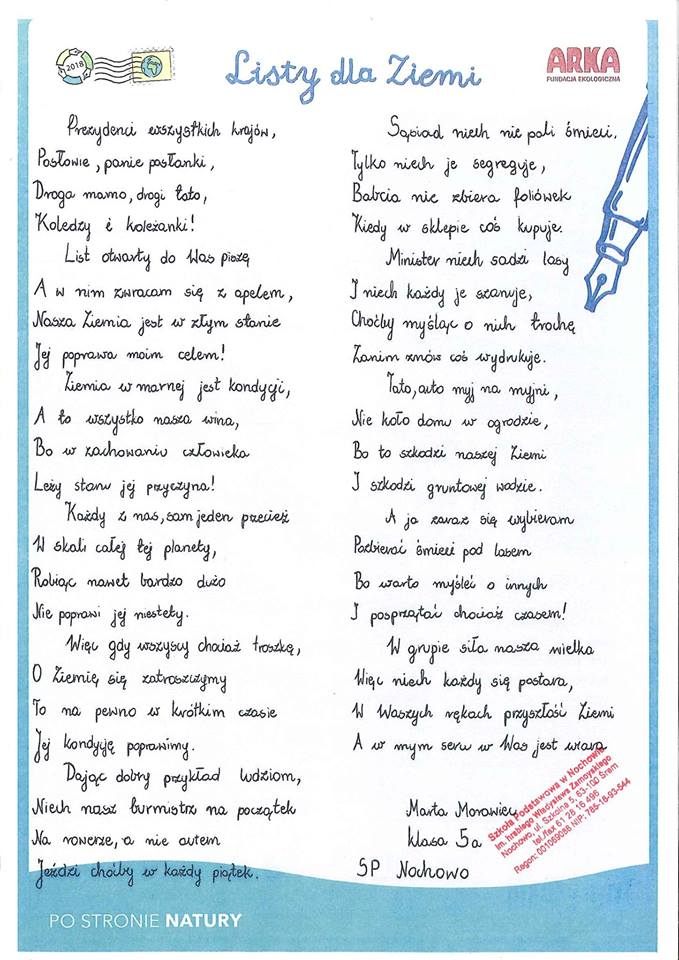 2018
Listy dla Ziemi
ARKA
FUNDACJA EKOLOGICZNA
Prezydenci wszystkich krajów,
Posłowie, panie posłanki,
Droga mamo, drogi tato,
Koledzy i koleżanki!
List otwarty do Was piszę
A w nim zwracam się z apelem,
Nasza Ziemia jest w złym stanie
Jej poprawa moim celem!
Ziemia w marnej jest kondycji,
A to wszystko nasza wina,
Bo w zachowaniu człowieka
Leży stanu jej przyczyna!
Każdy z nas, sam jeden przecież
W skali całej tej planety,
Robiąc nawet bardzo dużo
Nie poprawi jej niestety.
Więc gdy wszyscy chociaż troszkę,
O Ziemię się zatroszczymy
To na pewno w krótkim czasie
Jej kondycję poprawimy.
Dając dobry przykład ludziom,
Niech nasz burmistrz na początek
Na rowerze, a nie autem
Jeździ choćby w każdy piątek.
Sąsiad niech nie pali śmieci,
Tylko niech je segreguje,
Babcia nie zbiera foliówek
Kiedy w sklepie coś kupuje.
Minister niech sadzi lasy
I niech każdy je szanuje,
Choćby myśląc o nich trochę
Zanim znów coś wydrukuje.
Tato, auto myj na myjni,
Nie koło domu w ogrodzie,
Bo to szkodzi naszej Ziemi
I szkodzi gruntowej wodzie.
A ja zaraz się wybieram
Pozbierać śmieci pod lasem
Bo warto myśleć o innych
I posprzątać chociaż czasem!
W grupie siła nasza wielka
Więc niech każdy się postara,
W Waszych rękach przyszłość Ziemi
A w mym sercu w Was jest wiara
Marta Morawiec
klasa 5a
SP Nochowo
Szkoła Podstawowa w Nochowie
im. hrabiego Władysława Zamoyskiego
Nochowo, ul. Szkolna 5, 63-100 Śrem
tel./fax 61 28 16 496
Regon: 001069088 NIP: 785-16-93-544
PO STRONIE NATURY